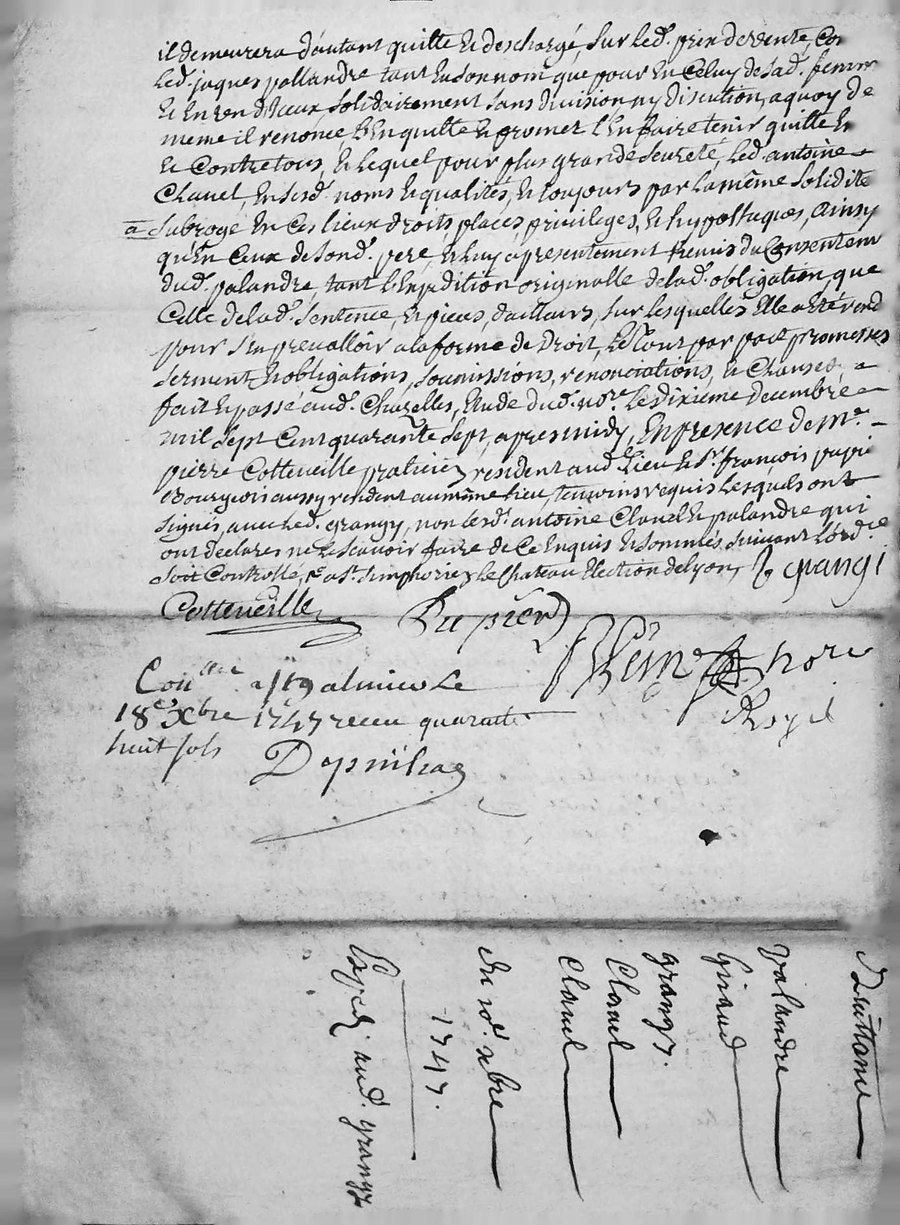 il demeurera d'autant quitte et deschargé, sur led. prix de vente, Con
led. jaques pallandre tant en son nom que pour en Celuy de sad. femme
et l'un d'Iceux solidairement sans division ny discution, a quoy de
meme il renonce l'En quitte et promet l'En faire tenir quitte
et Contre tous, et lequel pour plus grande seureté, led. antoine
Clavel, En sesd. noms et qualités, et toujours par la même solidité
a subrogé En Ces lieux droits places privileges, et hypottaques, ainsy
qu'En Ceux de sond. pere, et luy a presentement remis du Consentem
dud. palandre, tant l'Expedition originalle de lad. obligation, que
Celle de lad. sentence, et pieces, d'ailleurs, sur lesquelles Elle a eté rend
pour s'En prevalloir a la forme de Droit, le tout par pact promesses
serment et obligations, soumissions, renonciations, et Clauses
fait et passé aud. Chazelles, Etude dud. nore. le dixieme decembre
mil sept Cent quarante sept, apres midy, En presence de Me.
pierre Cotteveille praticien resident aud. lieu et Sr. françois pupié
Bourgeois aussy resident au même lieu, temoins requis lesquels ont
signés, avec led. grangy, non lesd. antoine Clavel et palandre qui
ont declarés ne le scavoir faire de Ce Enquis et sommés, suivant l'ord.ce
soit Controllé, a St. simphorien le Chateau Election de lyon, grangi
Cotteveille Pupier
nore
Royal
Con a St galmier Le
18e Xbre 1747 receu quarante
huit sols
quittance
palandre
Giraud
grangy.
Clavel
Clavel
Du 10e. xbre
1747.
Exped. aud. grangy